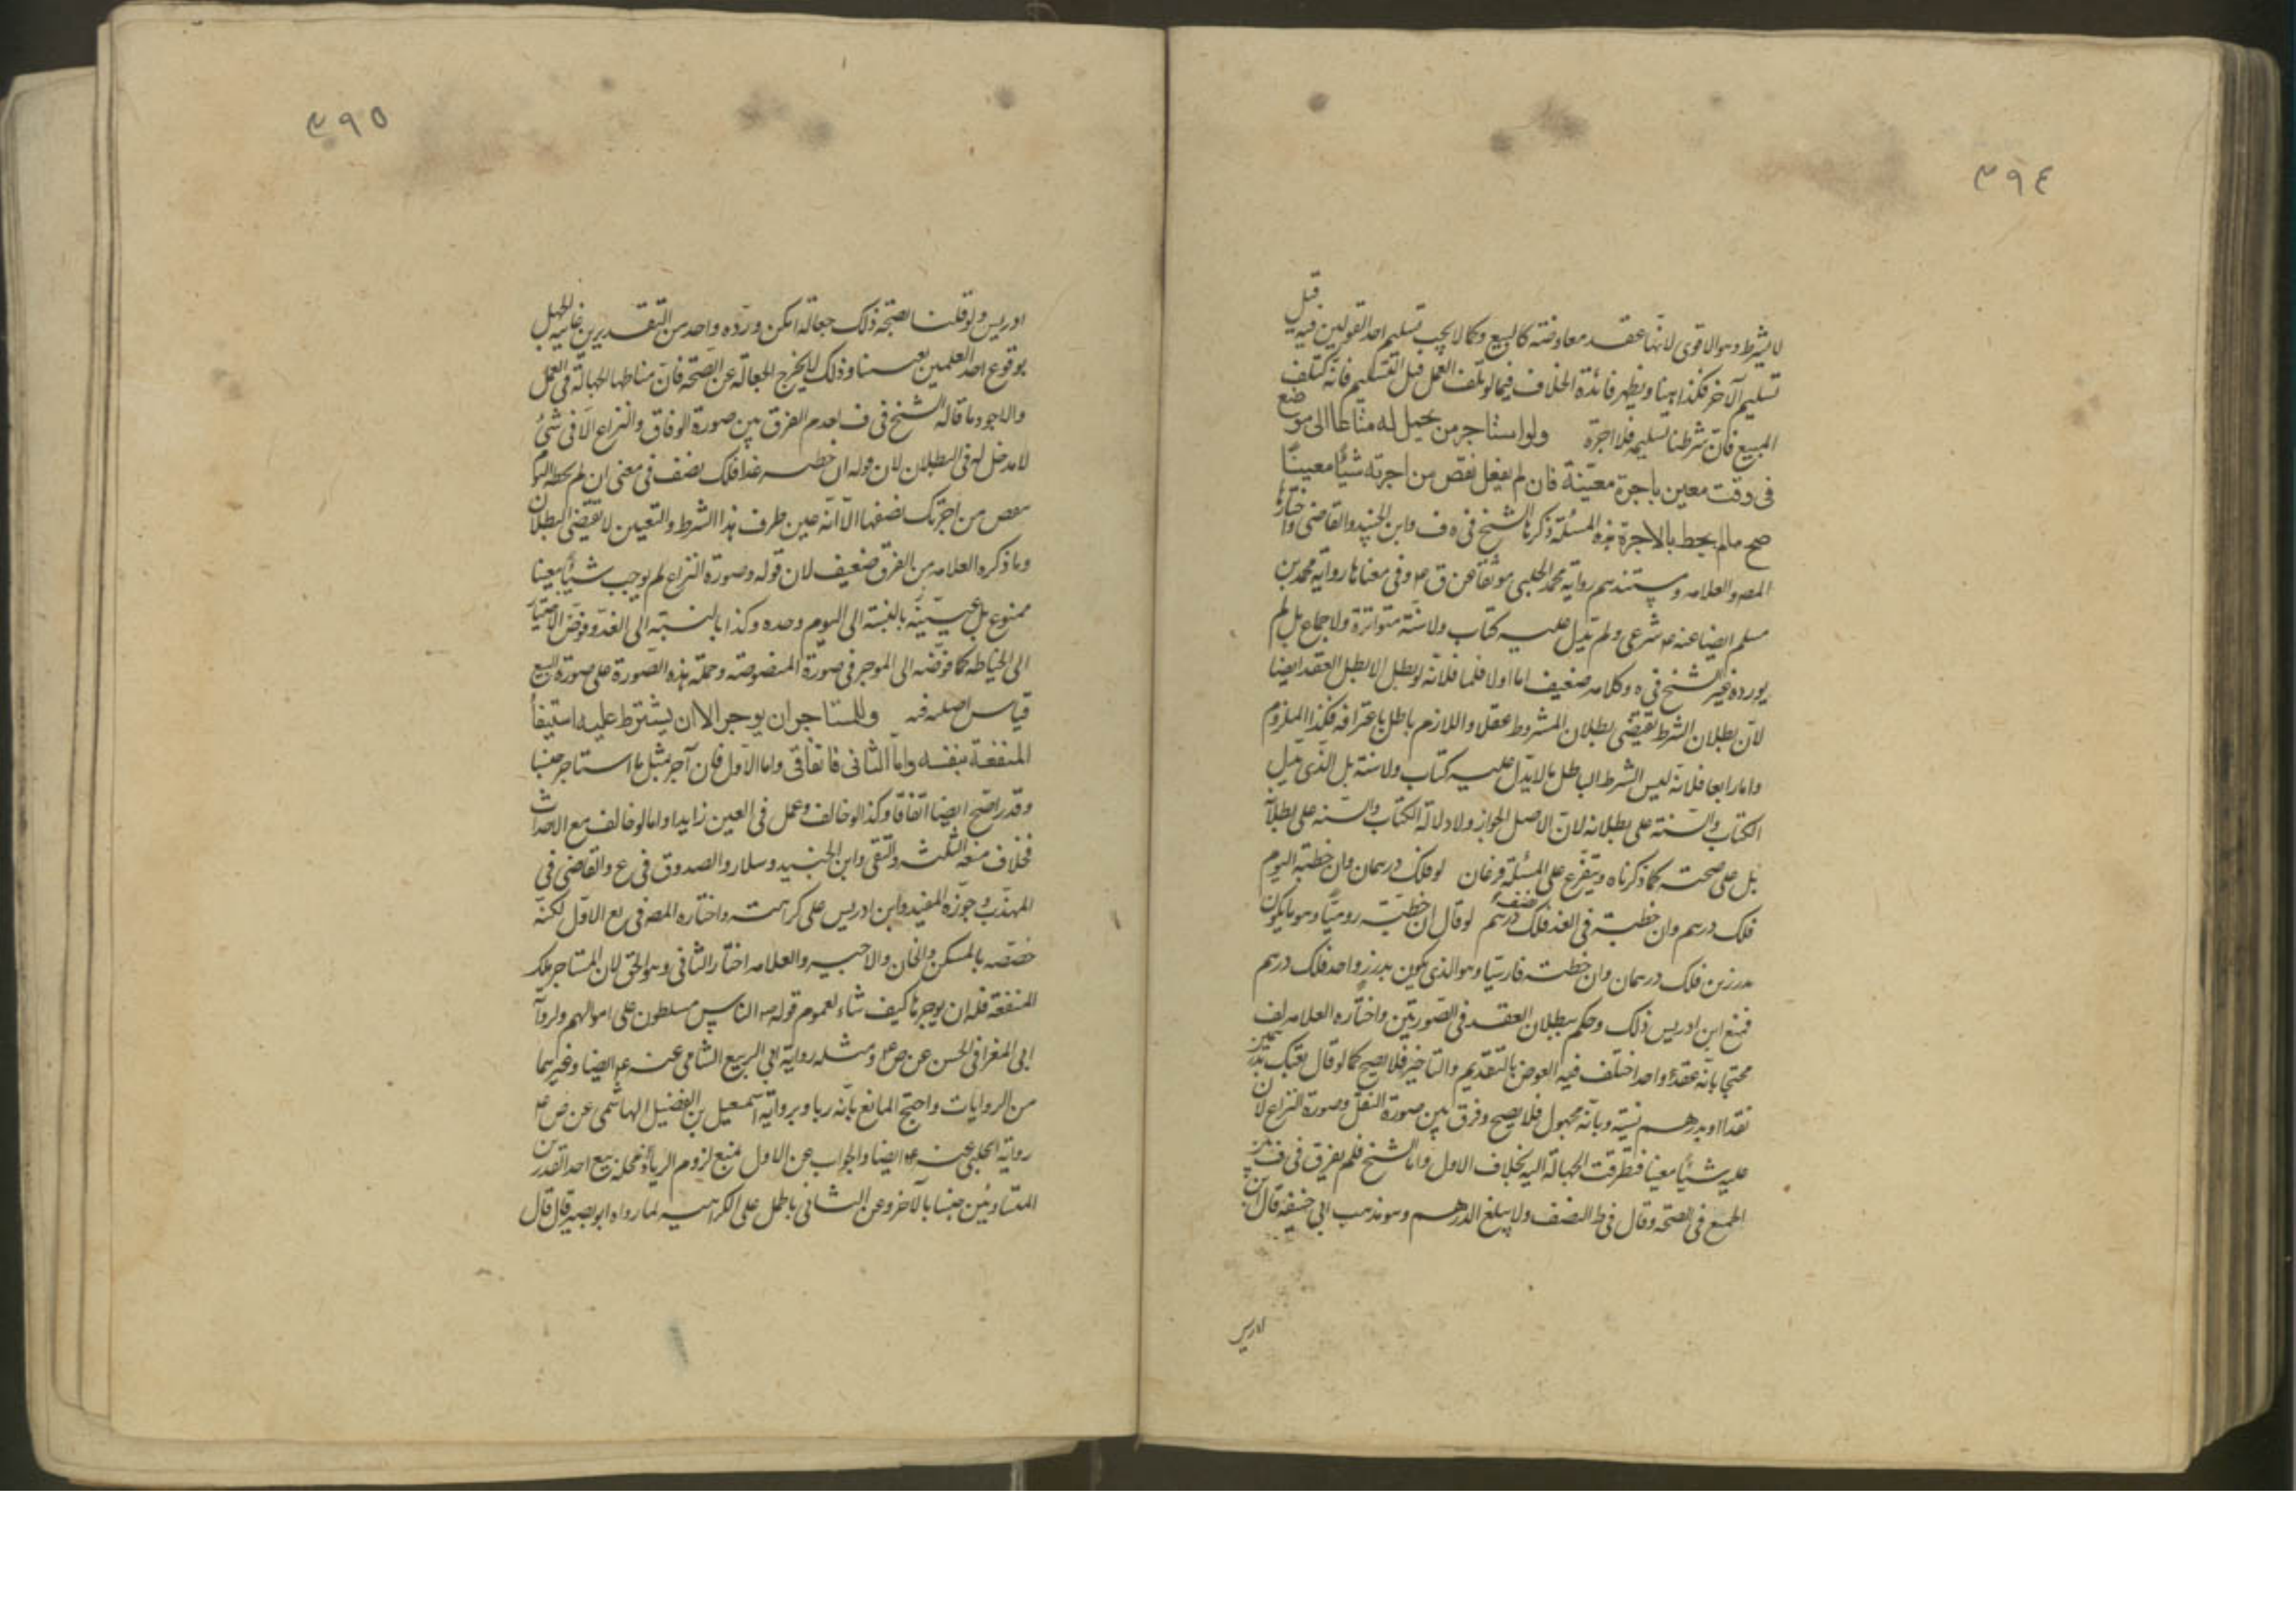 ٣٩٤
لا يشترط وهو الاقوى لانها عقد معاوضة كالبيع وكما لا يجب تسليم احد العوضين فيه قبل
تسليم الآخر فكذا هنا ويظهر فائدة الخلاف فيما لو تلف العمل قبل التسليم فانه كتلف
المبيع فان شرطنا تسليمه فلا اجرة ولو استاجر من يحمل له متاعا الى موضع
فى وقت معين باجرة معينة فان لم يفعل نقص من اجرته شيئا معينا
صح ما لم يحط بالاجرة هذه المسئلة ذكرها الشيخ فى ف وابن الجنيد والقاضى واختارها
المص والعلامه ومستندهم رواية محمد الحلبى موثقا عن ق ع وفى معناها رواية محمد بن
مسلم ايضا عنه ع شرعى ولم يدل عليه كتاب ولا سنة متواترة ولا اجماع بل لم
يورده غير الشيخ فى ه وكلامه ضعيف اما اولا فلما فلانه لو بطل الا بطل العقد ايضا
لان بطلان الشرط يقتضى بطلان المشروط عقلا واللازم باطل باعترافه فكذا الملزوم
واما رابعا فلانه ليس الشرط الباطل ما لا يدل عليه كتاب ولا سنة بل الذى يدل
الكتاب والسنة على بطلانه لان الاصل الجواز ولا دلالة الكتاب والسنة على بطلانه
بل على صحته كما ذكرناه ويتفرع على المسئلة فرعان لو فلك درهمان وان خطته اليوم
فلك درهم وان خطته فى الغد فلك نصف درهم لو قال ان خطته روميا وهو ما يكون
بدرزين فلك درهمان وان خطته فارسيا وهو الذى يكون بدرز واحد فلك درهم
فمنع ابن ادريس ذلك وحكم ببطلان العقد فى الصورتين واختاره العلامه لف
محتجا بانه عقد واحد اختلف فيه العوض بالتقديم والتاخير فلا يصح كما لو قال بعتك بدرهمين
نقدا او بدرهم نسية وبانه مجهول فلا يصح وفرق بين صورة النقل وصورة النزاع لان
عليه شيئا معينا فتطرقت الجهالة اليه بخلاف الاول واما الشيخ فلم يفرق فى ف بين
الجميع فى الصحة وقال فى ط النصف ولا يبلغ الدرهم وهو مذهب ابى حنيفة قال ابن
ادريس
٣٩٥
ادريس ولو قلنا بصحة ذلك جعالة امكن ورده واحد من التقديرين غايته الجهل
بوقوع احد العلمين تعينا وذلك لا يخرج الجعالة عن الصحة فان مناطها الجهالة فى العمل
والاجود ما قاله الشيخ فى ف لعدم الفرق بين صورة الوفاق والنزاع الا فى شئ
لا مدخل له فى البطلان لان قوله ان خطته غدا فلك نصف فى معنى ان لم تخطه اليوم
نقص من اجرتك نصفها الا انه عين طرف هذا الشرط والتعيين لا يقتضى البطلان
وما ذكره العلامه من الفرق ضعيف لان قوله وصورة النزاع لم يوجب شيئا معينا
ممنوع بل عينه بالنسبة الى اليوم وحده وكذا بالنسبة الى الغد وفوض الاختيار
الى الخياطه كما فوضه الى الموجر فى صورة المنصوصة وحمله هذه الصورة على صورة البيع
قياس اصله فيه وللمستاجر ان يوجر الا ان يشترط عليه استيفا
المنفعة بنفسه واما الثانى فاتفاقى واما الاول فان آجر بمثل ما استاجر جنسا
وقدرا صح ايضا اتفاقا وكذا لو خالف وعمل فى العين زايدا واما لو خالف مع الاحداث
فخلاف منعه الثلثه والتقى وابن الجنيد وسلار والصدوق فى ع والقاضى فى
المهذب وجوزه المفيد وابن ادريس على كراهته واختاره المص فى يع الاول لكنه
خصصه بالمسكن والخان والاجير والعلامه اختار الثانى وهو الحق لان المستاجر ملك
المنفعة فله ان يوجرها كيف شاء لعموم قوله ص الناس مسلطون على اموالهم ولرواية
ابى المغرا فى الحسن عن ص ع ومثله رواية ابى الربيع الشامى عنه ع ايضا وغيرهما
من الروايات واحتج المانع بانه ربا وبرواية اسمعيل بن الفضيل الهاشمى عن ص ع
رواية الحلبى عنه ع ايضا والجواب عن الاول بمنع لزوم الربا فمحله بيع احد القدرين
المتساويين جنسا بالآخر وعن الثانى بالحمل على الكراهيه لما رواه ابو بصير قال قال